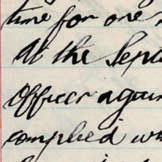 time for one
At the Sep
Officer again
complied w